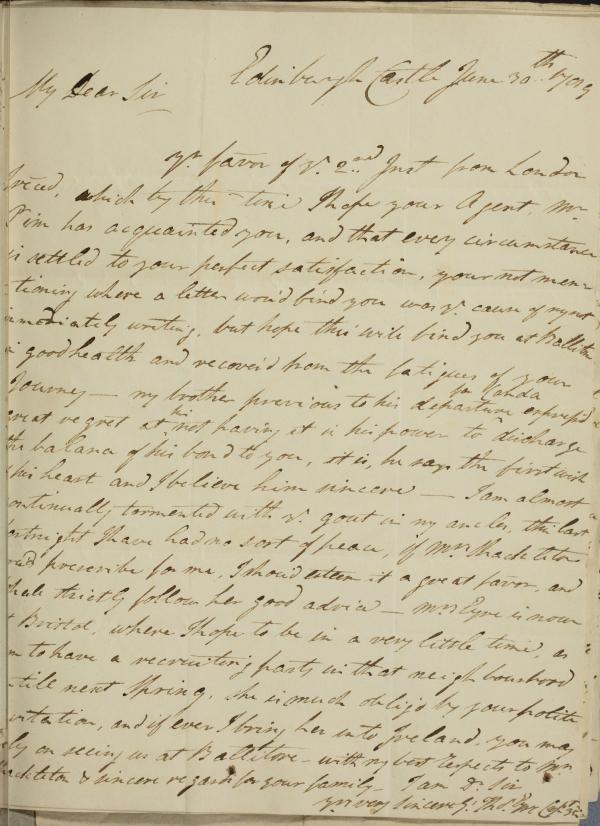 Edinburgh Castle June 30th 1789
My Dear Sir
yr. favor of ye. 2nd. Inst from London
rec'd, which by this time I hope your Agent, Mr.
Pim has acquainted you, and that every circumstance
is settled to your perfect satisfaction, your not men-
-tioning where a letter wou'd find you was ye. cause of my not
immediately writing, but hope this will find you at Ballitore
in good health and recover'd from the fatigues of your
Journey — my brother previous to his departure express'd
great regret at his not having it in his power to discharge
the balance of his bond to you, it is, he says the first wish
of his heart and I believe him sincere — I am almost
continually tormented with ye. gout in my ancles, this last
fortnight I have had no sort of peace, if Mrs. Shackleton
wou'd prescribe for me, I shou'd esteem it a great favor, and
shall strictly follow her good advice — Mrs. Eyre is now
at Bristol, where I hope to be in a very little time, as
I'm to have a recruiting party in that neighbourhood
till next Spring, she is much oblig'd by your polite
invitation, and if ever I bring her into Ireland, you may
rely on seeing us at Ballitore — with my best respects to Mrs.
Shackleton & sincere regards for your family — I am Dr. Sir
yrs. very Sincerely. Thos. Eyre